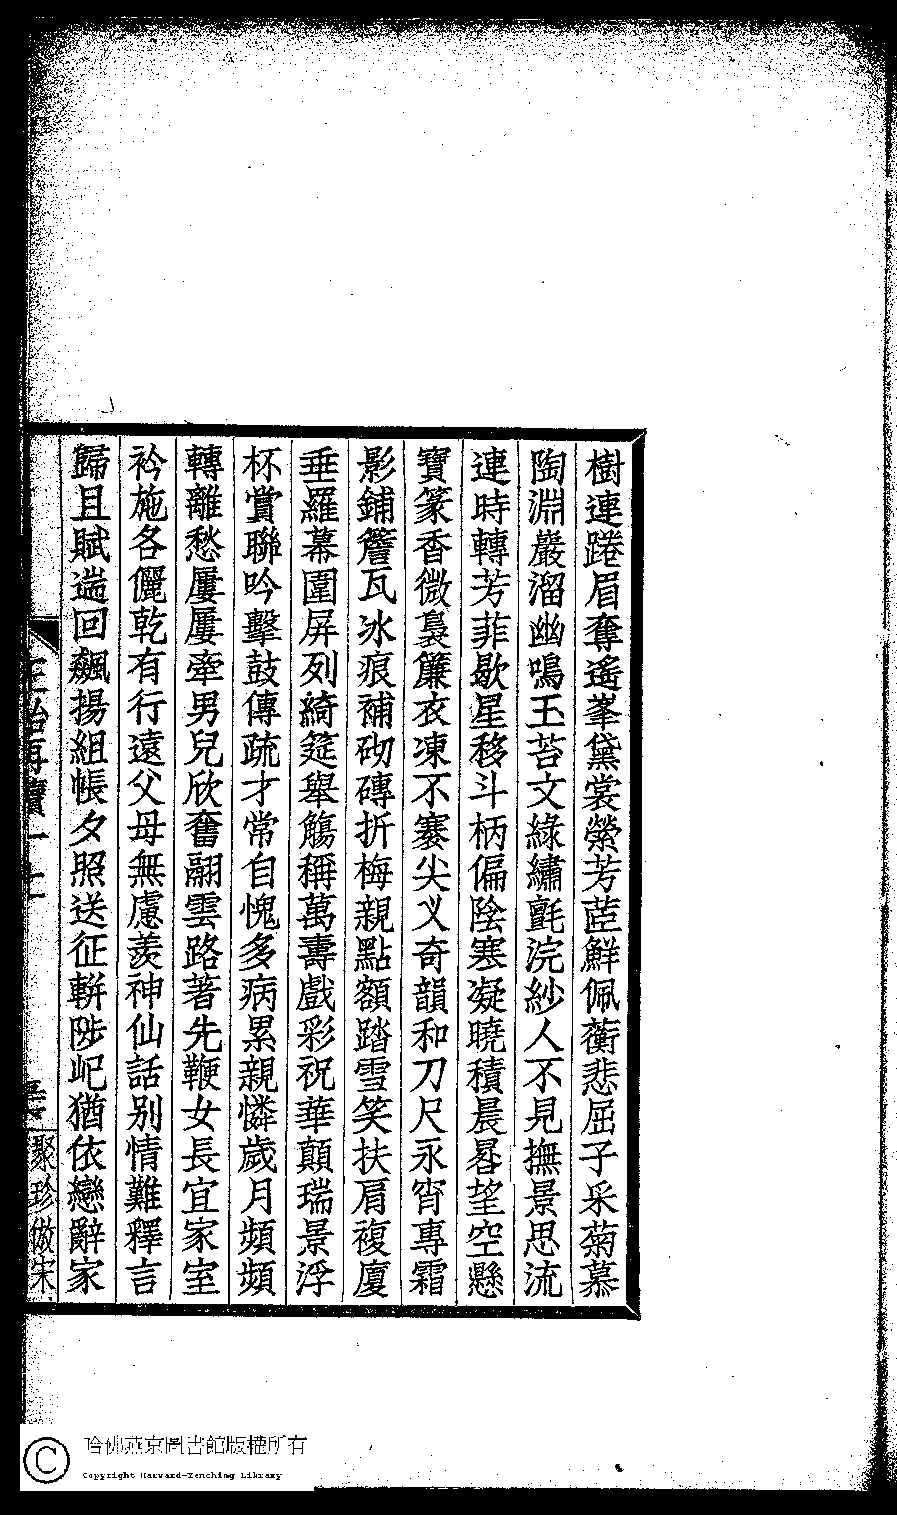 樹連踡眉奪遙峯黛裳縈芳茝鮮佩蘅悲屈子采菊慕
陶淵巖溜幽鳴玉苔文綠繡氈浣紗人不見撫景思流
連時轉芳菲歇星移斗柄偏陰寒凝曉積晨晷望空懸
寶篆香微裊簾衣凍不褰尖义奇韻和刀尺永宵專霜
影鋪簷瓦冰痕補砌磚折梅親點額踏雪笑扶肩複廈
垂羅幕圍屏列綺筵舉觴稱萬壽戲彩祝華顛瑞景浮
杯賞聯吟擊鼓傳疏才常自愧多病累親憐歲月頻頻
轉離愁屢屢牽男兒欣奮翮雲路著先鞭女長宜家室
衿施各儷乾有行遠父母無慮羨神仙話別情難釋言
歸且賦遄回飆揚組帳夕照送征輧陟屺猶依戀辭家
聚珍倣宋
哈佛燕京圖書館版權所有
Copyright Harvard-Yenching Library